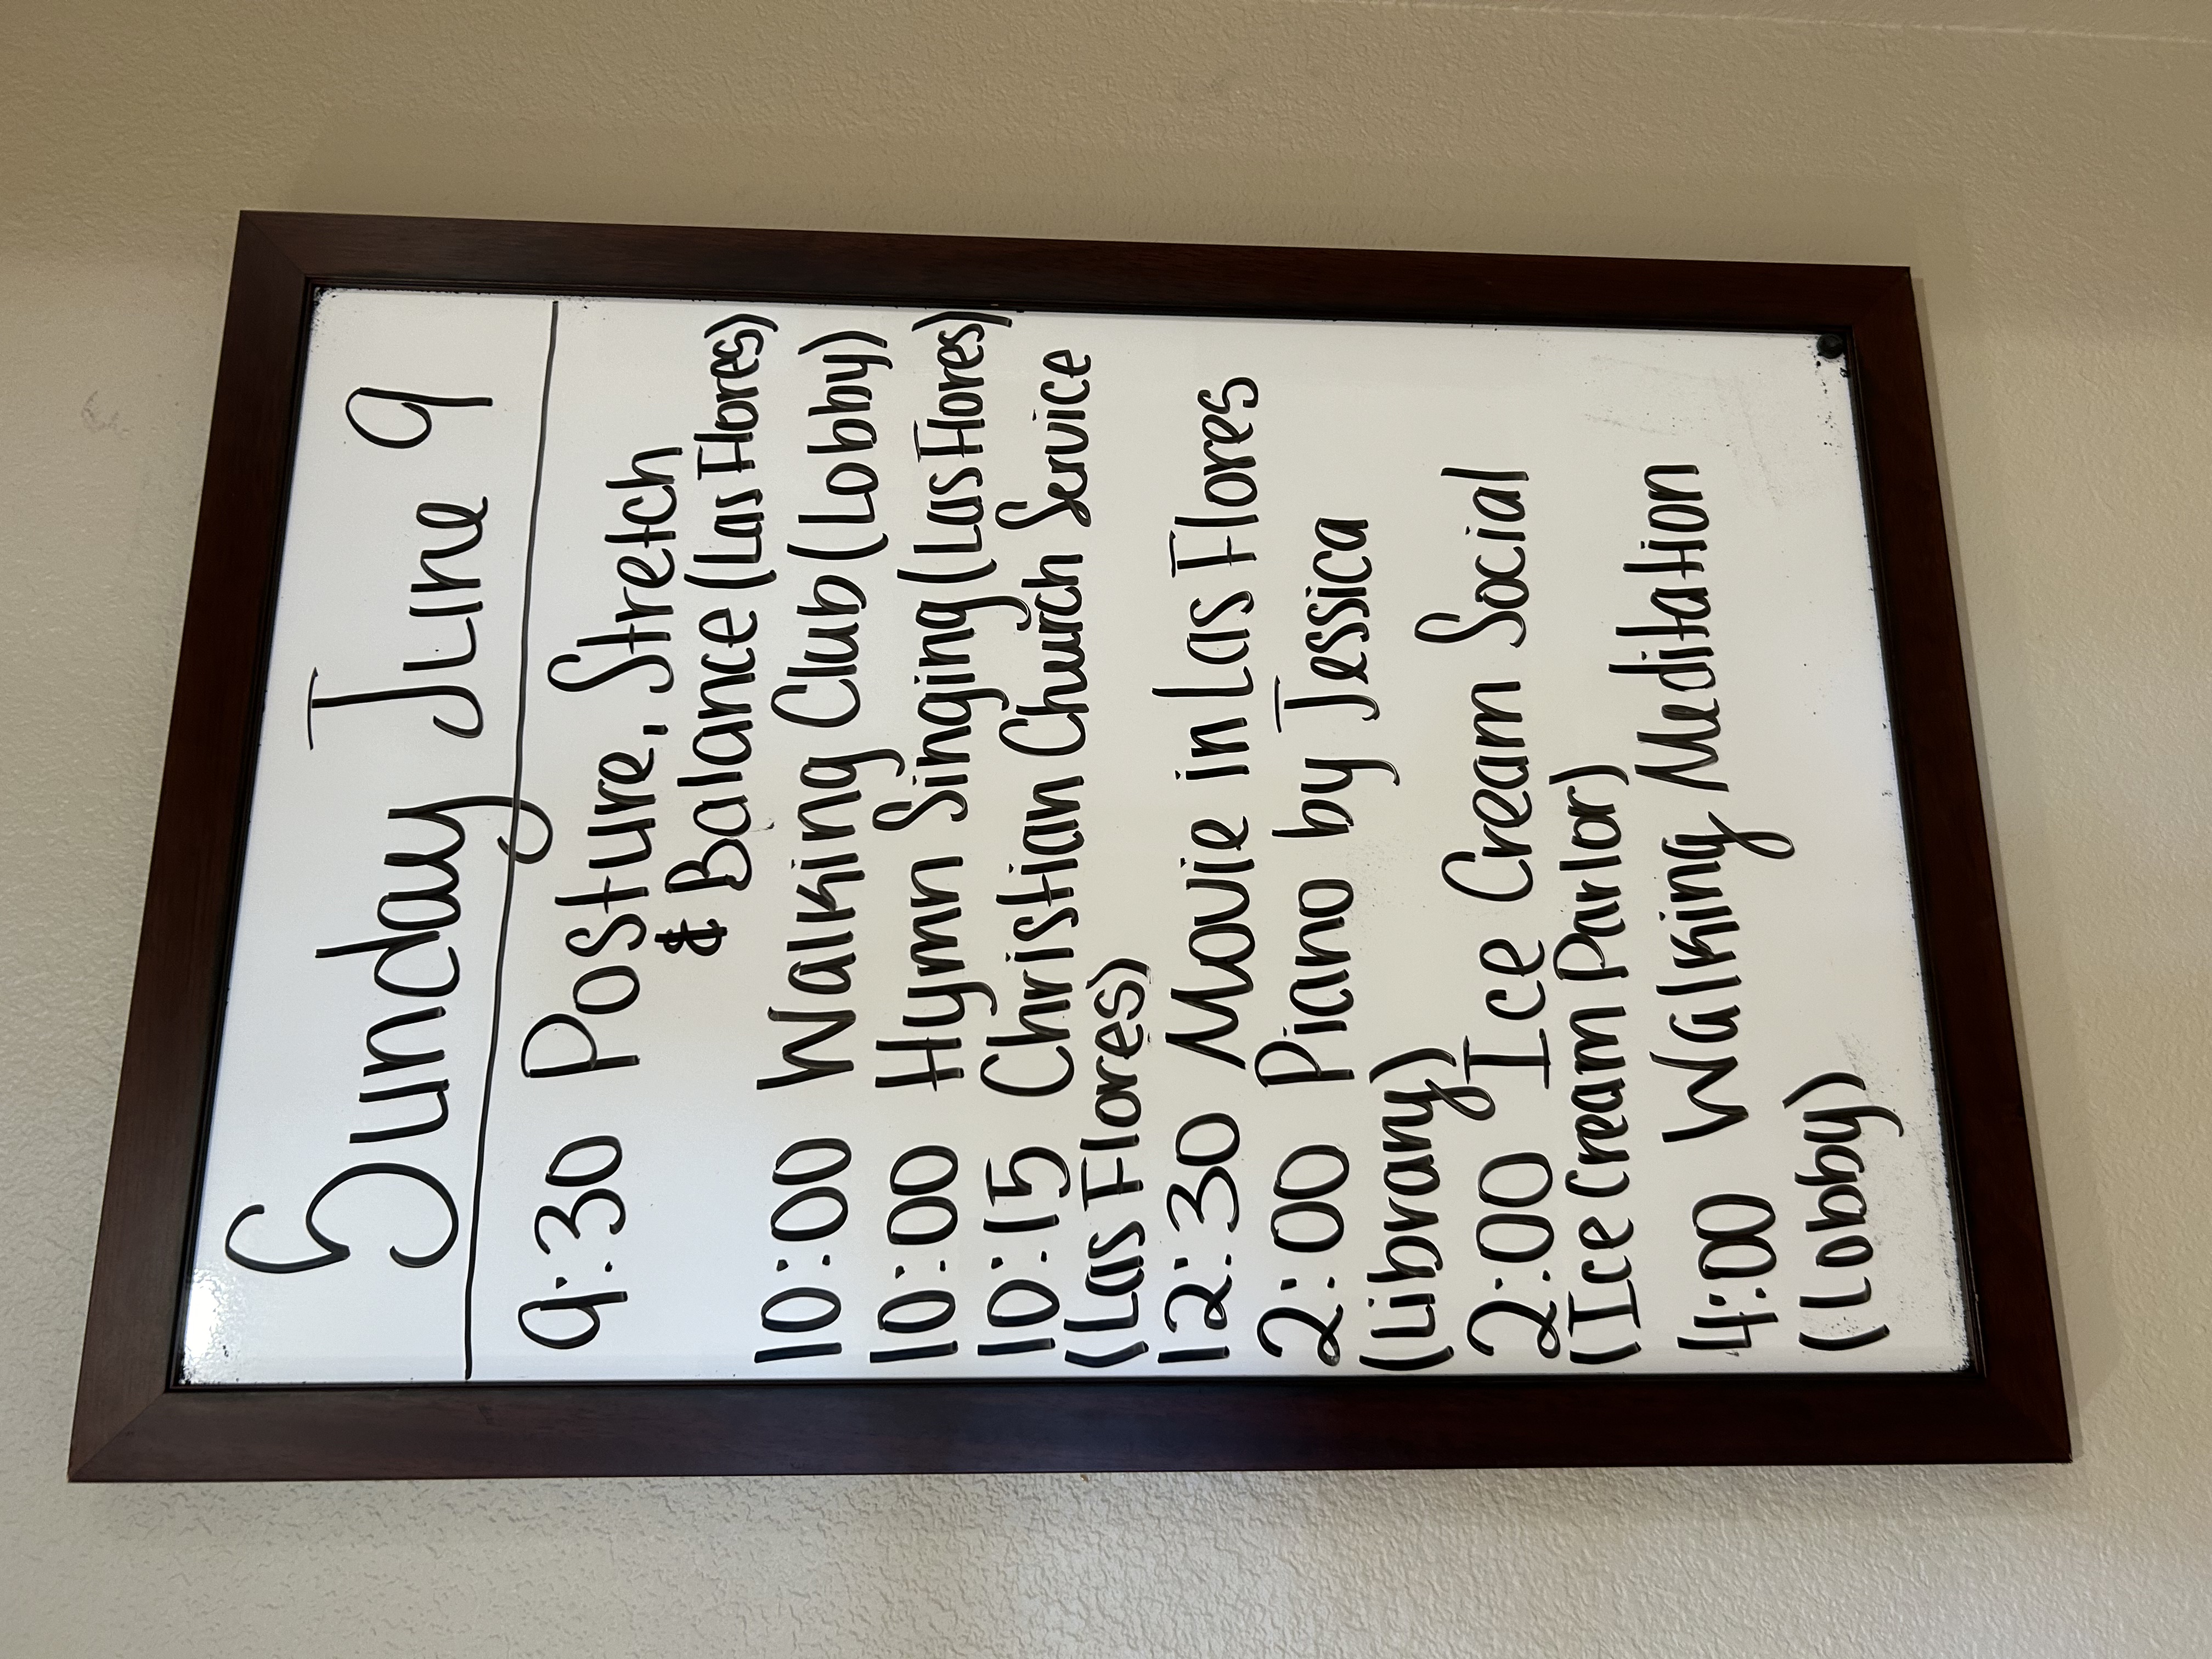 Sunday June 9
9:30 Posture, Stretch
& Balance (Las Flores)
10:00 Walking Club (Lobby)
10:00 Hymn Singing (Las Flores)
10:15 Christian Church Service
(Las Flores)
12:30 Movie in Las Flores
2:00 Piano by Jessica
(Library)
2:00 Ice Cream Social
(Ice Cream Parlor)
4:00 Walking Meditation
(Lobby)